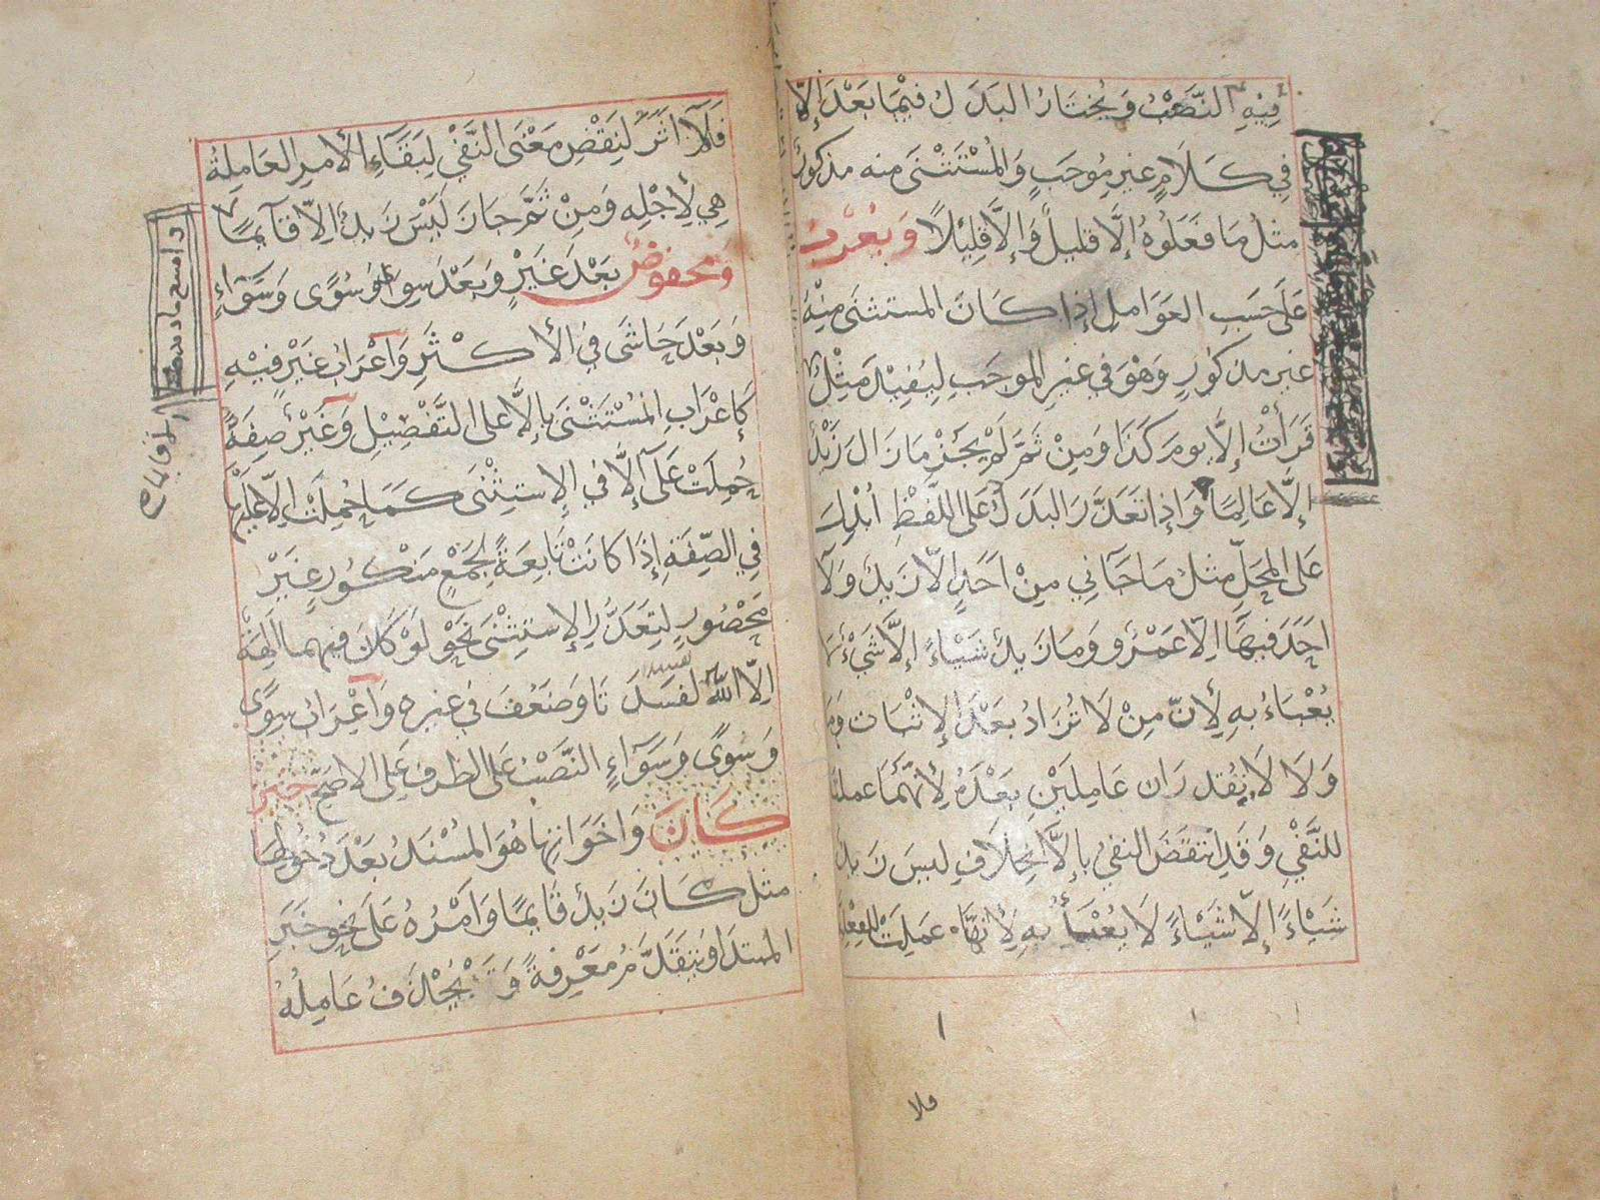 فِيْهِ النَّصْبُ وَيُخْتَارُ البَدَلُ فِيْمَا بَعْدَ إِلَّا
فِي كَلَامٍ غَيْرِ مُوْجَبٍ وَالْمُسْتَثْنَى مِنه مذكورٌ
مثلُ مَا فَعَلُوْهُ إِلَّا قَلِيلٌ وَإِلَّا قَلِيْلًا وَيُعْرَبُ
عَلَى حَسَبِ العَوَامِلِ إِذا كَانَ المستثنَى مِنْهُ
غَيرَ مذكُورٍ وَهْوَ فِي غيرِ الموجَبِ لِيُفِيْدَ مِثْلُ
قَرَأْتُ إِلَّا يومَ كَذَا وَمِنْ ثَمَّ لَمْ يَجُزْ مَا زَالَ زَيْدٌ
إِلَّا عَالِمًا وَإِذا تَعَذَّرَ البَدَلُ عَلَى اللَّفْظِ أُبْدِلَ
عَلَى المَحَلِّ مثلُ مَا جَآنِي مِنْ اَحَدٍ اِلَّا زَيدٌ وَلَآ
اَحَدَ فِيهَا اِلَّا عَمْرٌو وَمَا زَيدٌ شَيْاءً إِلَّا شَيْءٌ لَا
يُعْبَاءُ بِهِ لِأَنَّ مِنْ لَا تُزَادُ بَعْدَ الإِثْبَاتِ وَمَا
وَلَا لَا يُقَدَّرَانِ عَامِلَيْنِ بَعْدَهُ لِأَنَّهُمَا عملتا
للنَّفْيِ وَقَدِ انْتَقَضَ النفيُ بِإِلَّا بِخِلَافِ ليسَ زَيدٌ
شَيْاءً إِلَّا شَيْاءً لَا يُعْبَأُ بِهِ لِأَنَّهَا عَمِلَتْ للفِعْلِيَّةِ
فلا
فَلَآ اَثَرَ لِنَقْضِ مَعْنَى النَّفْيِ لِبَقَآءِ الأمرِ العَامِلَةُ
هِي لِأَجْلِهِ وَمِنْ ثَمَّ جَازَ لَيْسَ زَيدٌ اِلَّا قَآئِمًا
وَمخفوضٌ بَعْدَ غَيْرٍ وَبَعْدَ سِوًا وَسُوًى وَسَوَآءٍ
وَبَعْدَ حَاشَى فِي الأَكْثَرِ وَاَعْرَابُ غَيْرٍ فِيْهِ
كَإِعْرَابِ الْمُسْتَثْنَى بِإِلَّا على التَّفْصِيْلِ وَغَيْرُ صِفَةٌ
حُمِلَتْ عَلَى آِلَّا فِي الِاستِثْنَى كَمَا حُمِلَتْ اِلَّا عَلَيْهَا
فِي الصِّفَةِ إِذَا كَانَتْ تَابِعَةً لِجَمْعٍ مَنْكُورٍ غَيْرَ
مَحْصُورٍ لِتَعَذُّرِ الِاستِثْنَى نَحْوُ لَوْ كَانَ فِيهِمَا الِهَةٌ
اِلَّا اللَّهُ لَفَسَدَتَا وَضَعُفَ فِي غيرِهِ وَاَعْرَابُ سِوًى
وَسُوًى وَسَوَآءٍ النَّصْبُ عَلَى الظرفِ عَلَى الاَصَحِّ خَبَرُ
كَانَ وَاَخَوَاتِهَا هُوَ المُسْنَدُ بَعْدَ دُخُولِهَا
مثلُ كَانَ زَيدٌ قَايِمًا وَاَمْرُهُ عَلَى نَحْوِ خَبَرِ
المبتدَا وَيَتَقَدَّمُ مَعْرِفَةً وَقَدْ يُحْذَفُ عَامِلُهُ